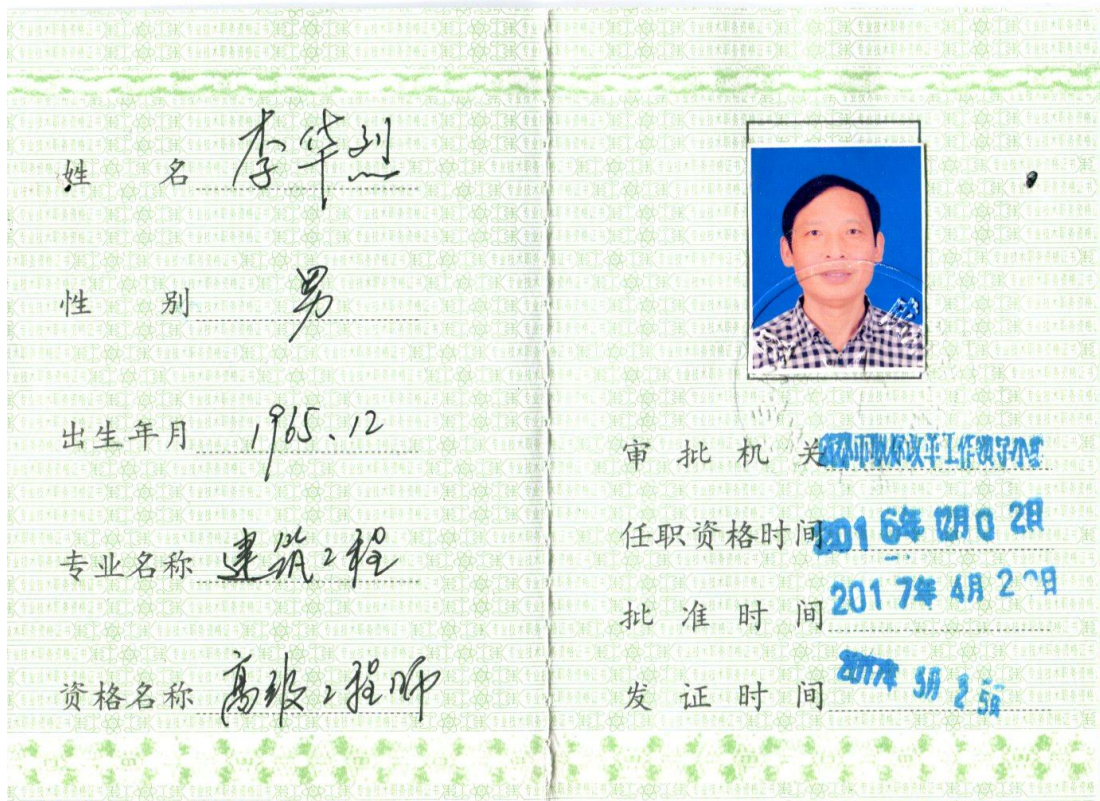 姓名 李华烈
性别 男
出生年月 1965.12
专业名称 建筑工程
资格名称 高级工程师
审批机关 市职称改革工作领导小组
任职资格时间 2016年12月02日
批准时间 2017年4月2日
发证时间 2017年5月25日